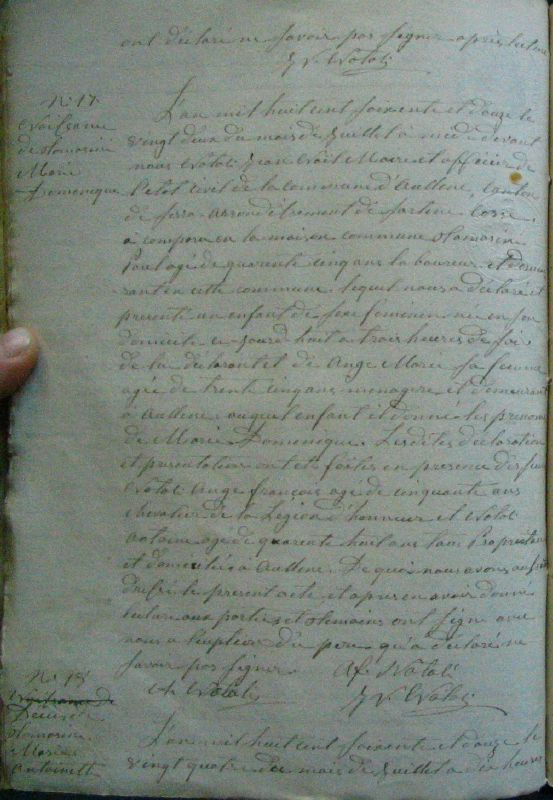 ont déclaré ne savoir pas signer après lecture
J. N. Natali
N: 17
Naissance
de
Marie
Domenique
L'an mil huit cent soixante et douze le
vingt deux du mois de Juillet à midi devant
nous Natali Jean Noël Maire et officier de
l'etat civil de la commune d'Aullene, canton
de Serra arrondissement de Sartene Corse,
a comparu en la maison commune
Paul agé de quarente cinq ans laboureur et demeu
rant en cette commune lequel nous a déclaré et
presenté un enfant de sexe feminen né en son
domicile à trois heures de soir
de la déclarant et de Ange Marie sa femme
agée de trente cinq ans menagere et demeurant
à Aullene auquel enfant il donne les prenoms
de Marie Domenique. Les dites déclaration
et presentation ont eté faites en presence des sieurs
Natali Ange françois agé de cinquante ans
chevalier de la Legion d'honneur et Natali
Antoine agé de quarente huit ans tous Proprietaires
et domiciliés à Aullene. De quoi nous avons
le present acte et apres en avoir donné
lecture aux parties et témoins ont signé avec
nous a l'exption du pere qu'a déclaré ne
savoir pas signer
Af. Natali
Natali
J. N. Natali
N: 18
Naissance de
Décès de
Marie
Antoinette
L'an mil huit cent soixante et douze le
vingt quatre du mois de Juillet a dix heures